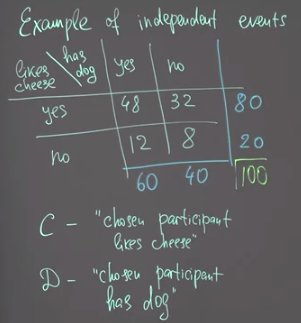 Example of independent events
likes cheese \ has dog yes no
yes 48 32 80
no 12 8 20
60 40 100
C - "chosen participant
likes cheese"
D - "chosen participant
has dog"